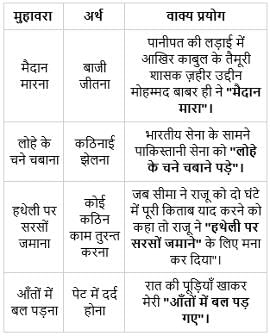 मुहावरा अर्थ वाक्य प्रयोग
मैदान मारना
बाजी जीतना
पानीपत की लड़ाई में
आखिर काबुल के तैमूरी
शासक ज़हीर उद्दीन
मोहम्मद बाबर ही ने "मैदान
मारा"।
लोहे के
चने चबाना
कठिनाई
झेलना
भारतीय सेना के सामने
पाकिस्तानी सेना को "लोहे
के चने चबाने पड़े"।
हथेली पर
सरसों
जमाना
कोई
कठिन
काम तुरन्त
करना
जब सीमा ने राजू को दो घंटे
में पूरी किताब याद करने को
कहा तो राजू ने "हथेली पर
सरसों जमाने" के लिए मना
कर दिया"।
आँतों में
बल पड़ना
पेट में दर्द
होना
रात की पूड़ियाँ खाकर
मेरी "आँतों में बल पड़
गए"।